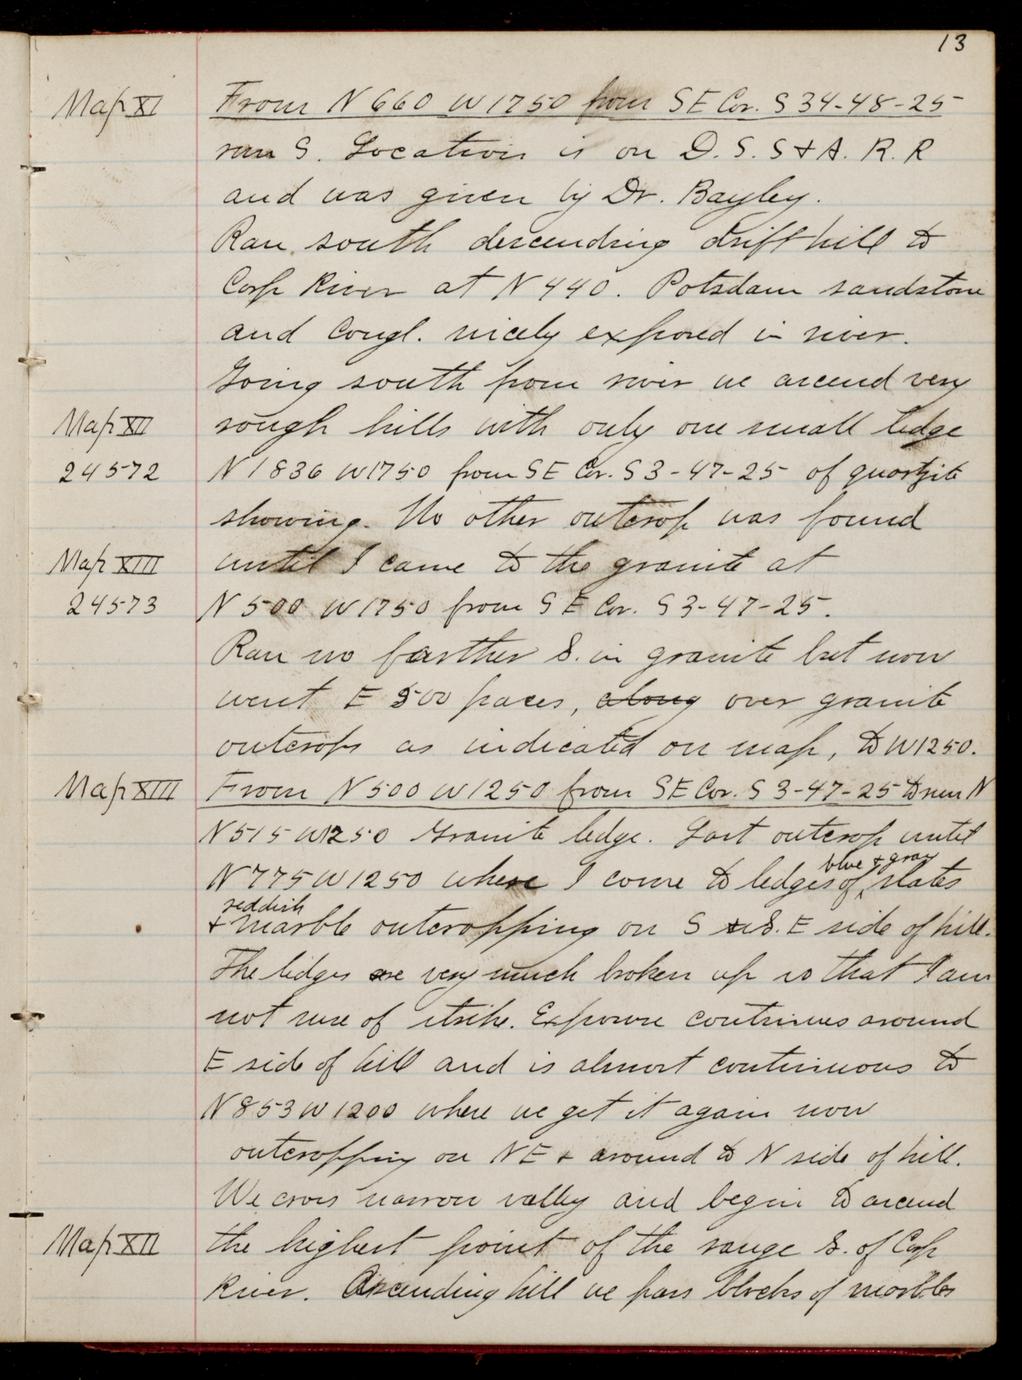 13
Map XI From N 660 W 1750 from SE Cor. S 34-48-25
run S. Location is on D. S. S & A. R. R
and was given by Dr. Bayley.
Ran south descending drift hill to
Carp River at N 440. Potsdam sandstone
and Congl. nicely exposed in river.
Going south from river we ascend very
Map XII rough hills with only one small ledge
24572 N 1836 W 1750 from SE Cor. S 3-47-25 of quartzite
showing. No other outcrop was found
Map XIII until I came to the granite at
24573 N 500 W 1750 from S E Cor. S 3-47-25.
Ran no farther S. in granite but now
went E 500 paces, along over granite
outcrops as indicated on map, to W 1250.
Map XIII From N 500 W 1250 from SE Cor. S 3-47-25 to run N
N 515 W 1250 Granite ledge. Last outcrop until
N 775 W 1250 where I come to ledges of blue & gray slates
& reddish marble outcropping on S & S. E side of hill.
The ledges are very much broken up so that I am
not sure of strike. Exposure continues around
E side of hill and is almost continuous to
N 853 W 1200 where we get it again now
outcropping on NE & around to N side of hill.
We cross narrow valley and begin to ascend
Map XII the highest point of the range S. of Carp
River. Ascending hill we pass blocks of marbles